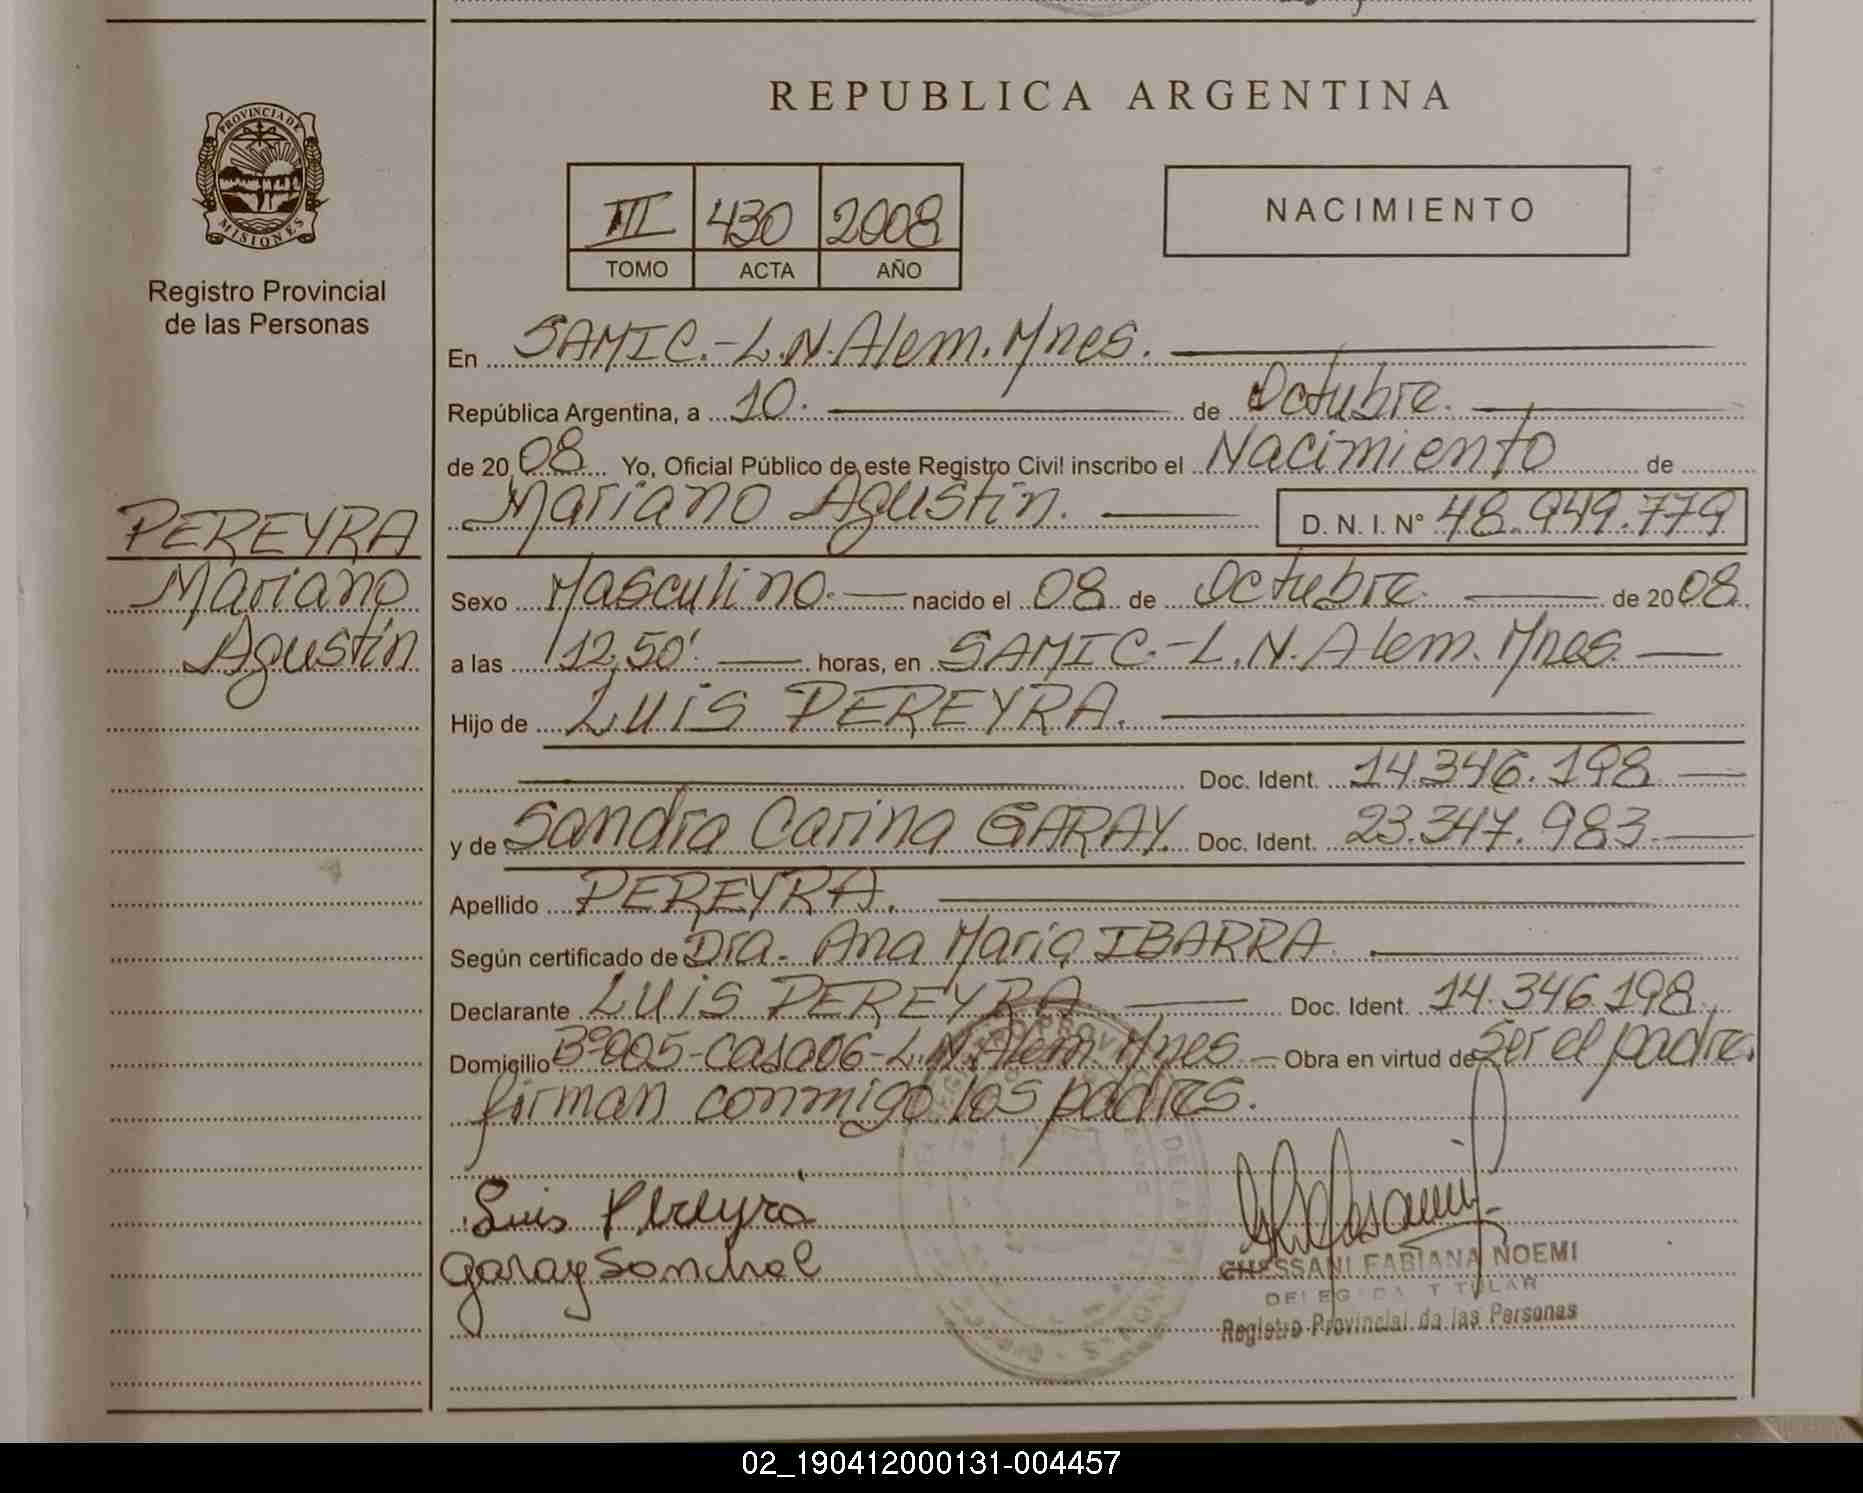 REPUBLICA ARGENTINA
PROVINCIA DE
MISIONES
Registro Provincial
de las Personas
III 430 2008
TOMO ACTA AÑO
NACIMIENTO
En SAMIC.-L.N.Alem.Mnes.
República Argentina, a 10. de Octubre.
de 20 08 Yo, Oficial Público de este Registro Civil inscribo el Nacimiento de
Mariano Agustín. D. N. I. N° 48.949.779
PEREYRA
Mariano
Agustín
Sexo Masculino. nacido el 08 de Octubre de 20 08.
a las 12,50' horas, en SAMIC.-L.N.Alem.Mnes.
Hijo de LUIS PEREYRA.
Doc. Ident. 14.346.198
y de Sandra Carina GARAY. Doc. Ident. 23.347.983.
Apellido PEREYRA.
Según certificado de Dra. Ana María IBARRA.
Declarante LUIS PEREYRA Doc. Ident. 14.346.198.
Domicilio B°005-Casa06-L.N.Alem.Mnes. Obra en virtud de Ser el padre.
firman conmigo los padres.
Luis Pereyra
Garay Sandra C
FABIANA NOEMI
TITULAR
Registro Provincial de las Personas
02_190412000131-004457